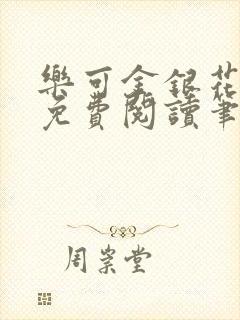 樂可金銀花
免費閱讀筆
周崇堂